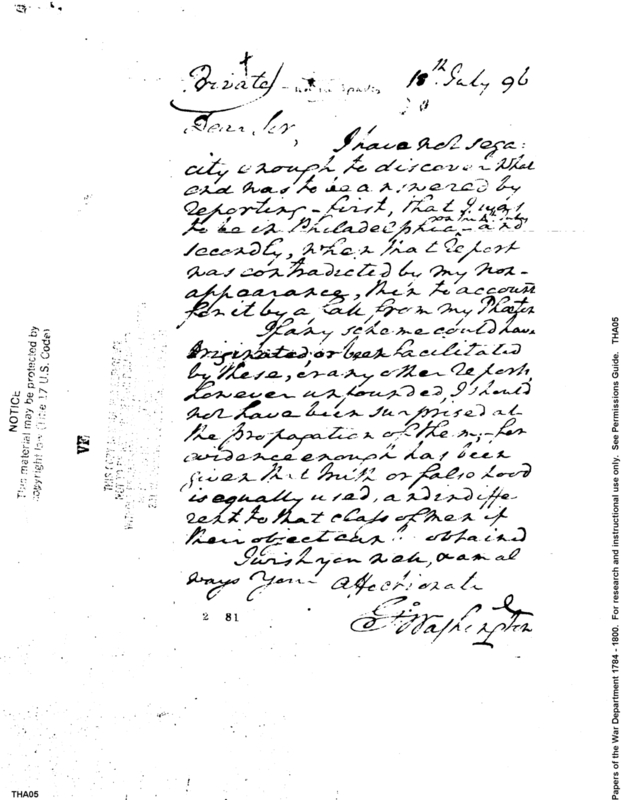 Private
18th July 96
Dear Sir,
I have not saga-
city enough to discover what
end was to be answered by
reporting - first, that I was
to be in Philadelphia - and
on the 4th July
secondly, when that report
was contradicted by my non-
appearance, then to account
for it by a fall from my Phaeton
If any scheme could have
originated, or been facilitated
by these, or any other report,
however unfounded, I should
not have been surprised at
the propagation of them; - for
evidence enough has been
given that truth or falsehood
is equally used, and indiffe
rent to that class of men if
their object can be obtained
I wish you well, & am al
ways Your Affectionate
Go Washington
2 81
NOTICE
This material may be protected by
copyright law (Title 17 U.S. Code)
VF
Papers of the War Department 1784 - 1800. For research and instructional use only. See Permissions Guide. THA05
THA05